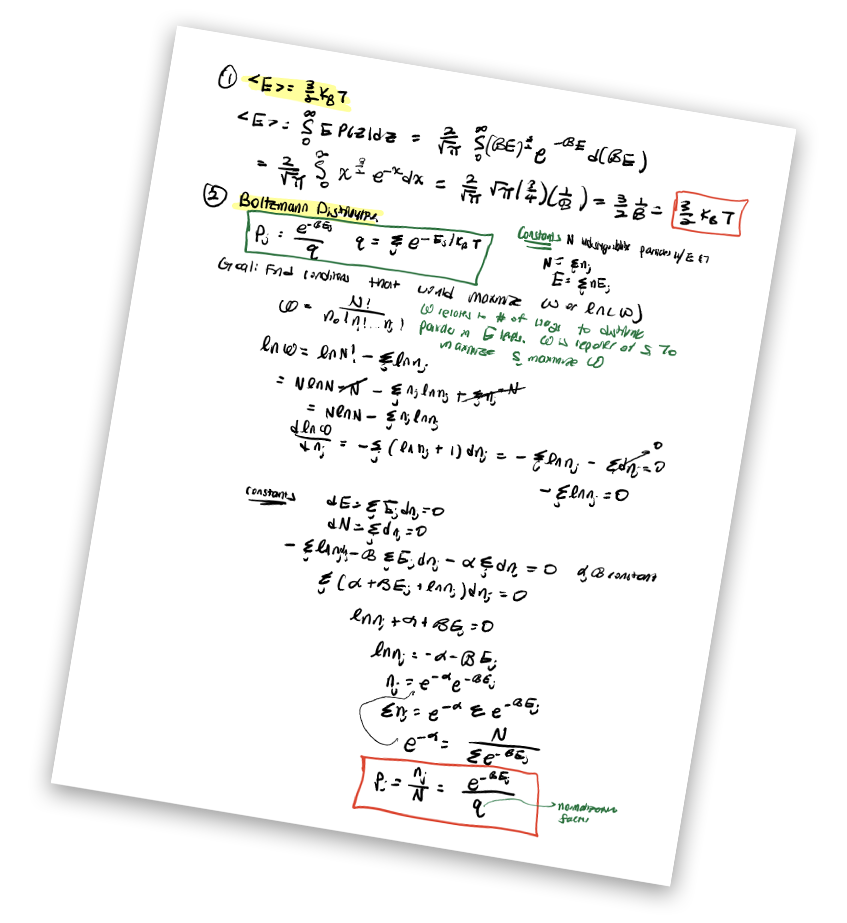 ① <E> = 3/2 K_B T
<E> = ∫_0^∞ E P(E)dE = 2/√π ∫_0^∞ (BE)^{3/2} e^{-BE} d(BE)
= 2/√π ∫_0^∞ x^{3/2} e^{-x} dx = 2/√π √π (3/4)(1/B) = 3/2 1/B = 3/2 K_B T
② Boltzmann Distribution
P_j = e^{-BE_j}/q q = Σ_j e^{-E_j/K_B T}
Constants N indistinguishable particles w/ E
N = Σn_j
E = Σn_jE_j
Goal: Find conditions that would maximize ω or ln(ω)
ω = N!/(n_0! n_1! ... n_j!)
ω relates to # of ways to distribute
particles in E levels. ω is of S. To
maximize S, maximize ω
lnω = lnN! - Σ_j ln n_j
= NlnN - N - Σ_j n_j ln n_j + Σ_j n_j = N
= NlnN - Σ_j n_j ln n_j
dlnω/dn_j = -Σ_j (ln n_j + 1) dn_j = -Σ_j ln n_j - Σdn_j = 0 0
-Σ_j ln n_j = 0
constants
dE = Σ_j E_j dn_j = 0
dN = Σ_j dn_j = 0
-Σ_j ln n_j - B Σ_j E_j dn_j - α Σ_j dn_j = 0 α, B constant
Σ_j (α + BE_j + ln n_j) dn_j = 0
ln n_j + α + BE_j = 0
ln n_j = -α - BE_j
n_j = e^{-α} e^{-BE_j}
Σn_j = e^{-α} Σ e^{-BE_j}
e^{-α} = N/Σe^{-BE_j}
P_j = n_j/N = e^{-BE_j}/q
normalization
factor